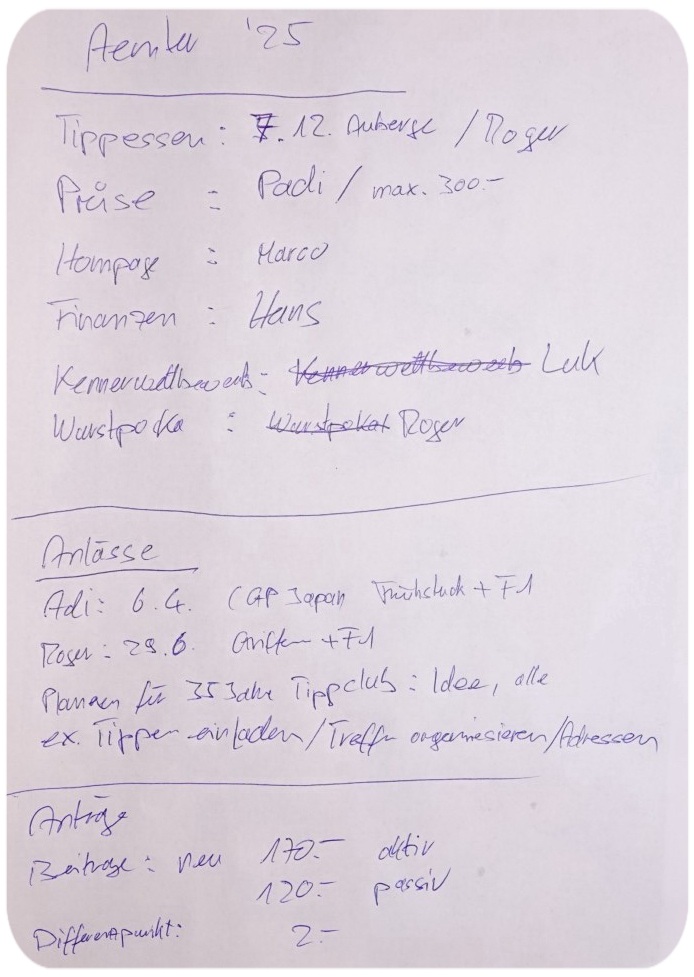 Aemter '25
Tippessen: 7.12. Auberge / Roger
Preise : Padi / max. 300.-
Hompage : Marco
Finanzen : Hans
Kennerwettbewerb: Kennerwettbewerb Luk
Wurstpocka : Wurstpokal Roger
Anlässe
Adi: 6.4. (GP Japan Frühstück + F1
Roger: 29.6. Grillen + F1
Planen für 35 Jahre Tippclub: Idee, alle
ex. Tipper einladen / Treffen organiesieren / Adressen
Anträge
Beiträge: neu 170.- aktiv
120.- passiv
Differenzpunkt: 2.-